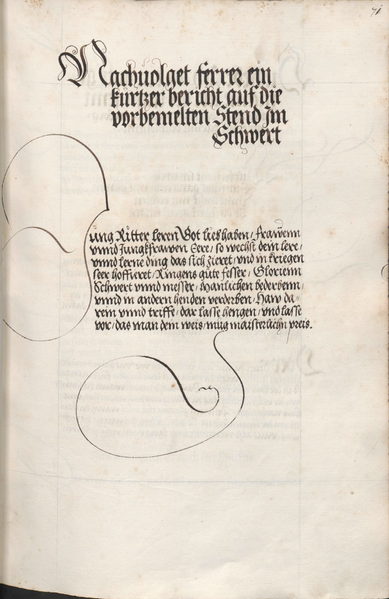 71
Nachuolget ferrer ein
kurtzer bericht auf die
vorbemelten Stend Jm
Schwert
Jung Ritter leren Got lieb haben / frawenn
vnnd Jungkfrawen Eere / so wechst dein Eere /
vnnd lerne ding das dich zieret / vnd in kriegen
seer hoffieret / Ringens gute fesser / Glorienn
Schwert vnnd messer / Manlichen bederbenn /
vnnd in andern henden verderben / Haw da=
rein vnnd triffs / dar lasse hengen / vnd lasse
vor / das man dem weis / mug maisterlichn preis.